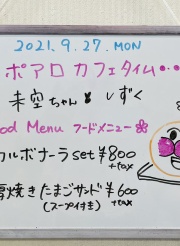 2021.9.27.MON
ポアロカフェタイム・・
未空ちゃん しずく
od Menu フードメニュー
カルボナーラset ¥800
+tax
厚焼きたまごサンド ¥600
(スープ付き) +tax